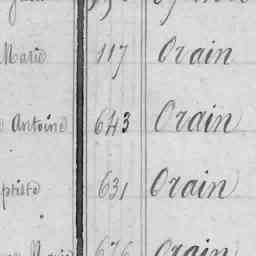 Marie 117 Orain
Antoine 643 Orain
ptiste 631 Orain
Marie 676 Orain